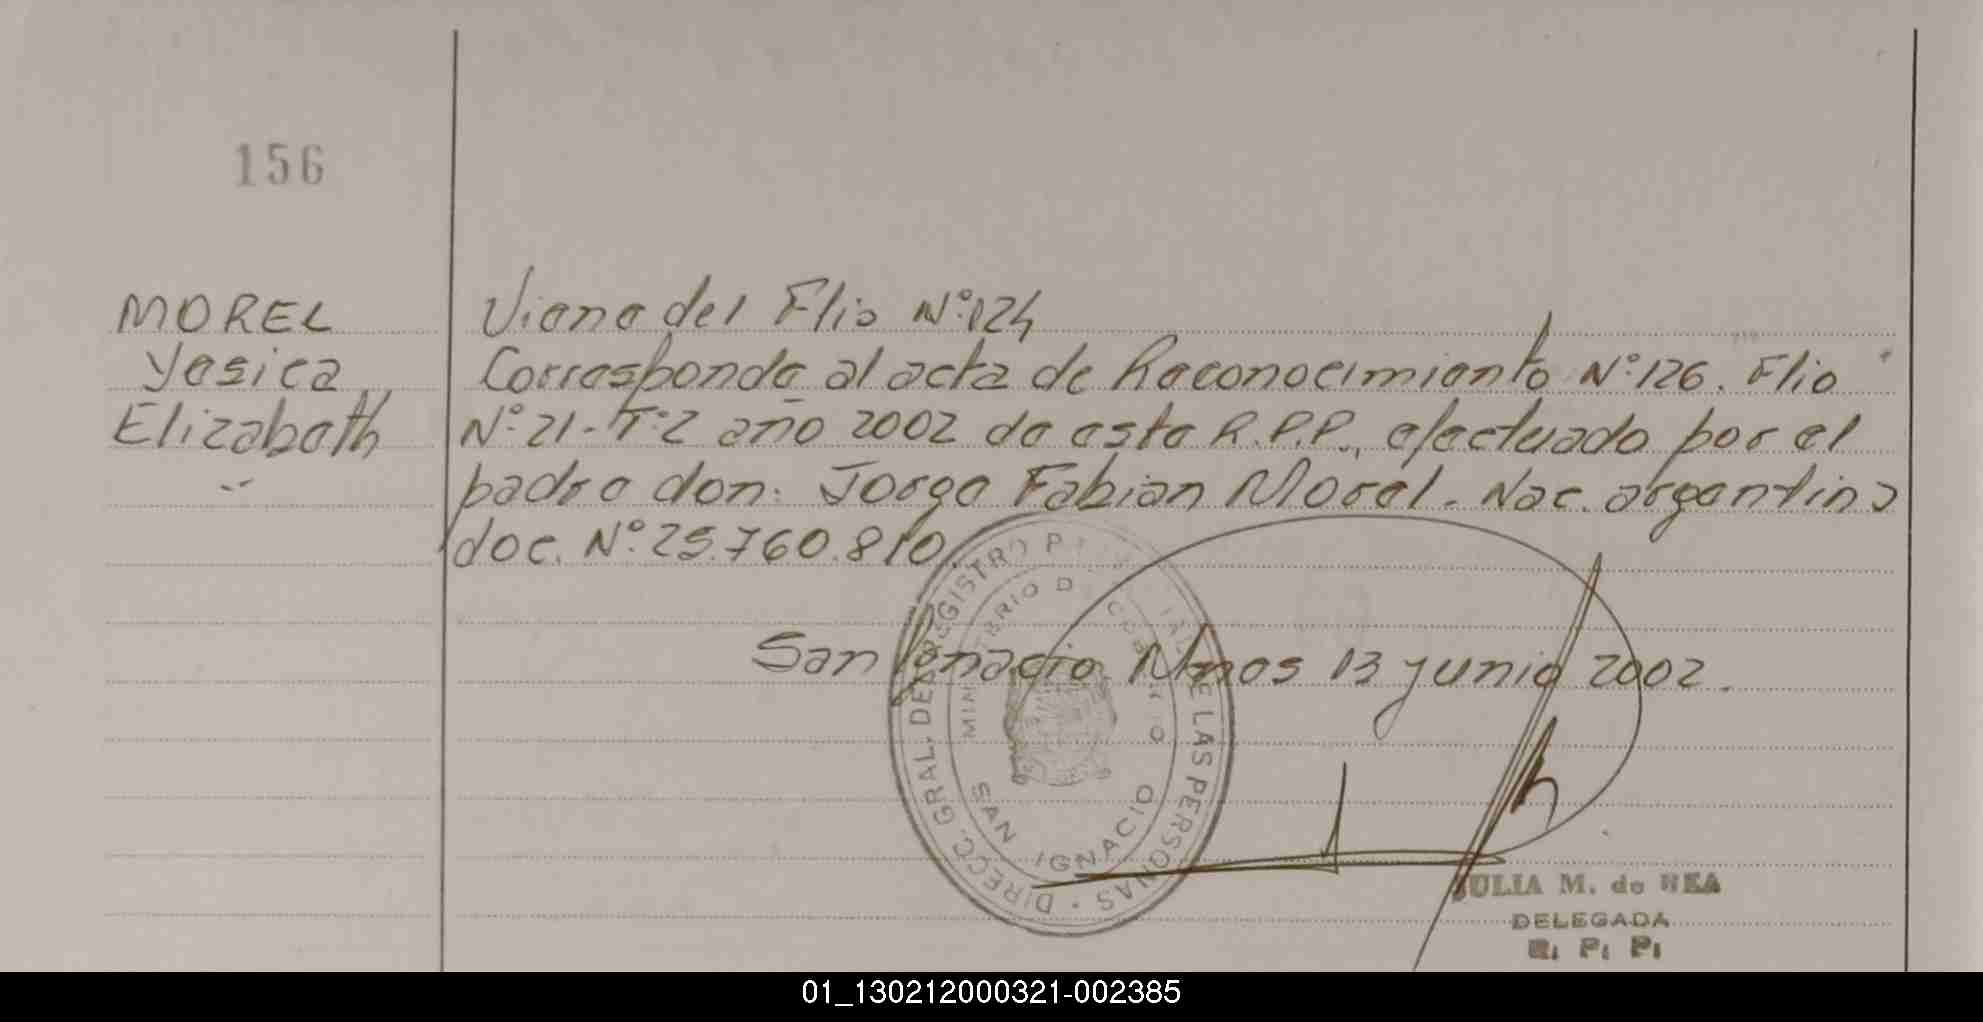 156
MOREL
Yesica
Elizabeth
Viene del Flio N°:124
Corresponde al acta de Reconocimiento N°:126. Flio
N°:21-T:2 año 2002 de este R.P.P., efectuado por el
padre don: Jorge Fabian Morel. Nac. argentino
doc. N°:25.760.810.
San Ignacio Mnes 13 junio 2002.
DIRECC. GRAL. DEL REGISTRO DE LAS PERSONAS
MINISTERIO DE GOBIERNO
SAN IGNACIO
JULIA M. de REA
DELEGADA
R. P. P.
01_130212000321-002385